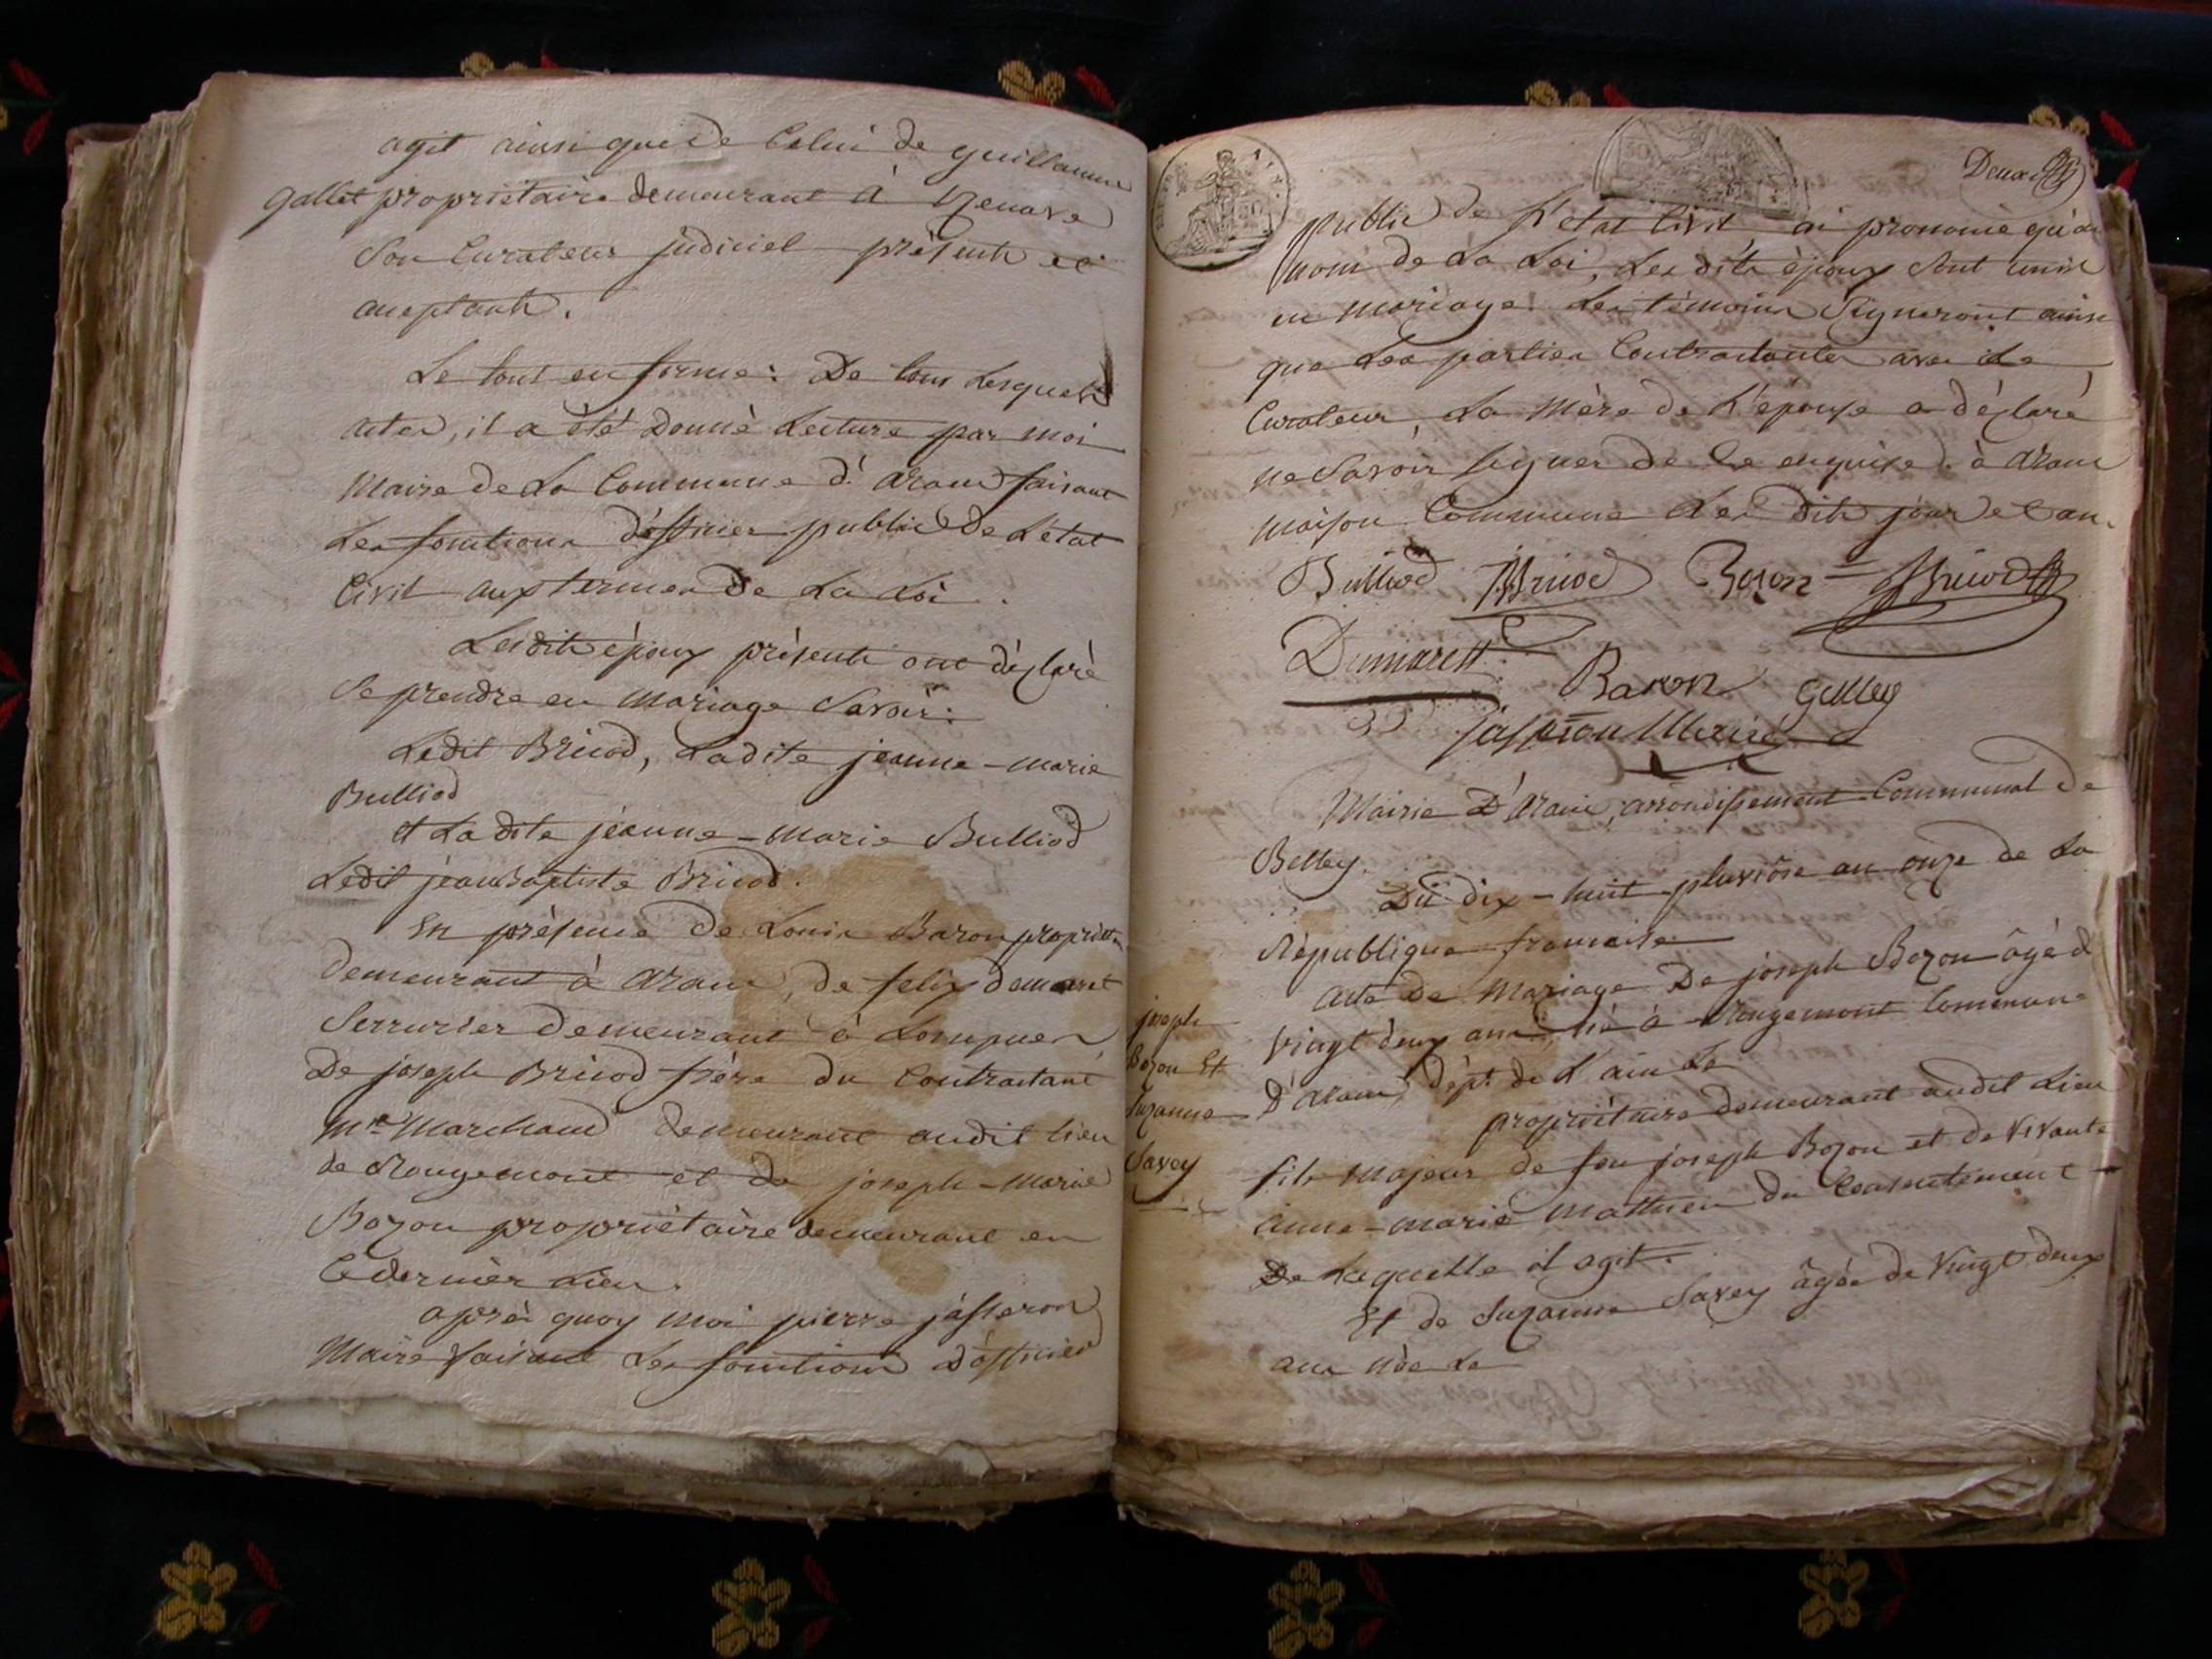 agit ainsi que de Celui de guillaume
gallet propriétaire demeurant à
Son Curateur judiciel présents et
aceptants.
Le tout en forme: De tous Lesquels
actes, il a été Donné Lecture par moi
Maire de La Commune d'aranc faisant
Les fonctions d'officier public de Létat
Civil aux termes de La Loi.
Lesdits époux présents ont déclaré
Se prendre en Mariage Savoir:
Ledit Bricod, Ladite jeanne-marie
Bulliod
et La dite jeanne-Marie Bulliod
Ledit jean Baptiste Bricod.
En présence de Louis Baron propriét.re
demeurant à aranc, de felix demaret
Serrurier demeurant à
De joseph Bricod frère du Contractant
Marchand demeurant audit lieu
de Rougemont et de joseph-Marie
Bozon propriétaire demeurant en
Ce dernier Lieu.
après quoy moi pierre jasseron
Maire faisant Les fonctions d'officier
Deux
public de L'état Civil ai prononcé qu'au
nom de La Loi, Les dits époux Sont unis
en mariage. Les témoins Signeront ainsi
que Les parties Contractantes avec Le
Curateur, La Mère de L'épouse a déclaré
ne Savoir signer de Ce enquise. à aranc
maison Commune Les dits jour et an.
Bulliod Bricod Bozon Bricod
Dumarest
Baron Galley
Jasseron Maire
Mairie D'aranc, arrondissement Communal de
Belley.
Du dix-huit pluviôse an onze de La
République francaise
acte De Mariage De joseph Bozon âgé de
vingt deux ans, né à Rougemont Commune
D'aranc, dépt. de L'ain Le
propriétaire demeurant audit Lieu
fils majeur de feu joseph Bozon et de vivante
anne-marie Mathieu du Consentement
De Laquelle il agit.
Et de Suzanne Savey âgée de vingt deux
ans née Le
joseph
Bozon Et
Suzanne
Savey